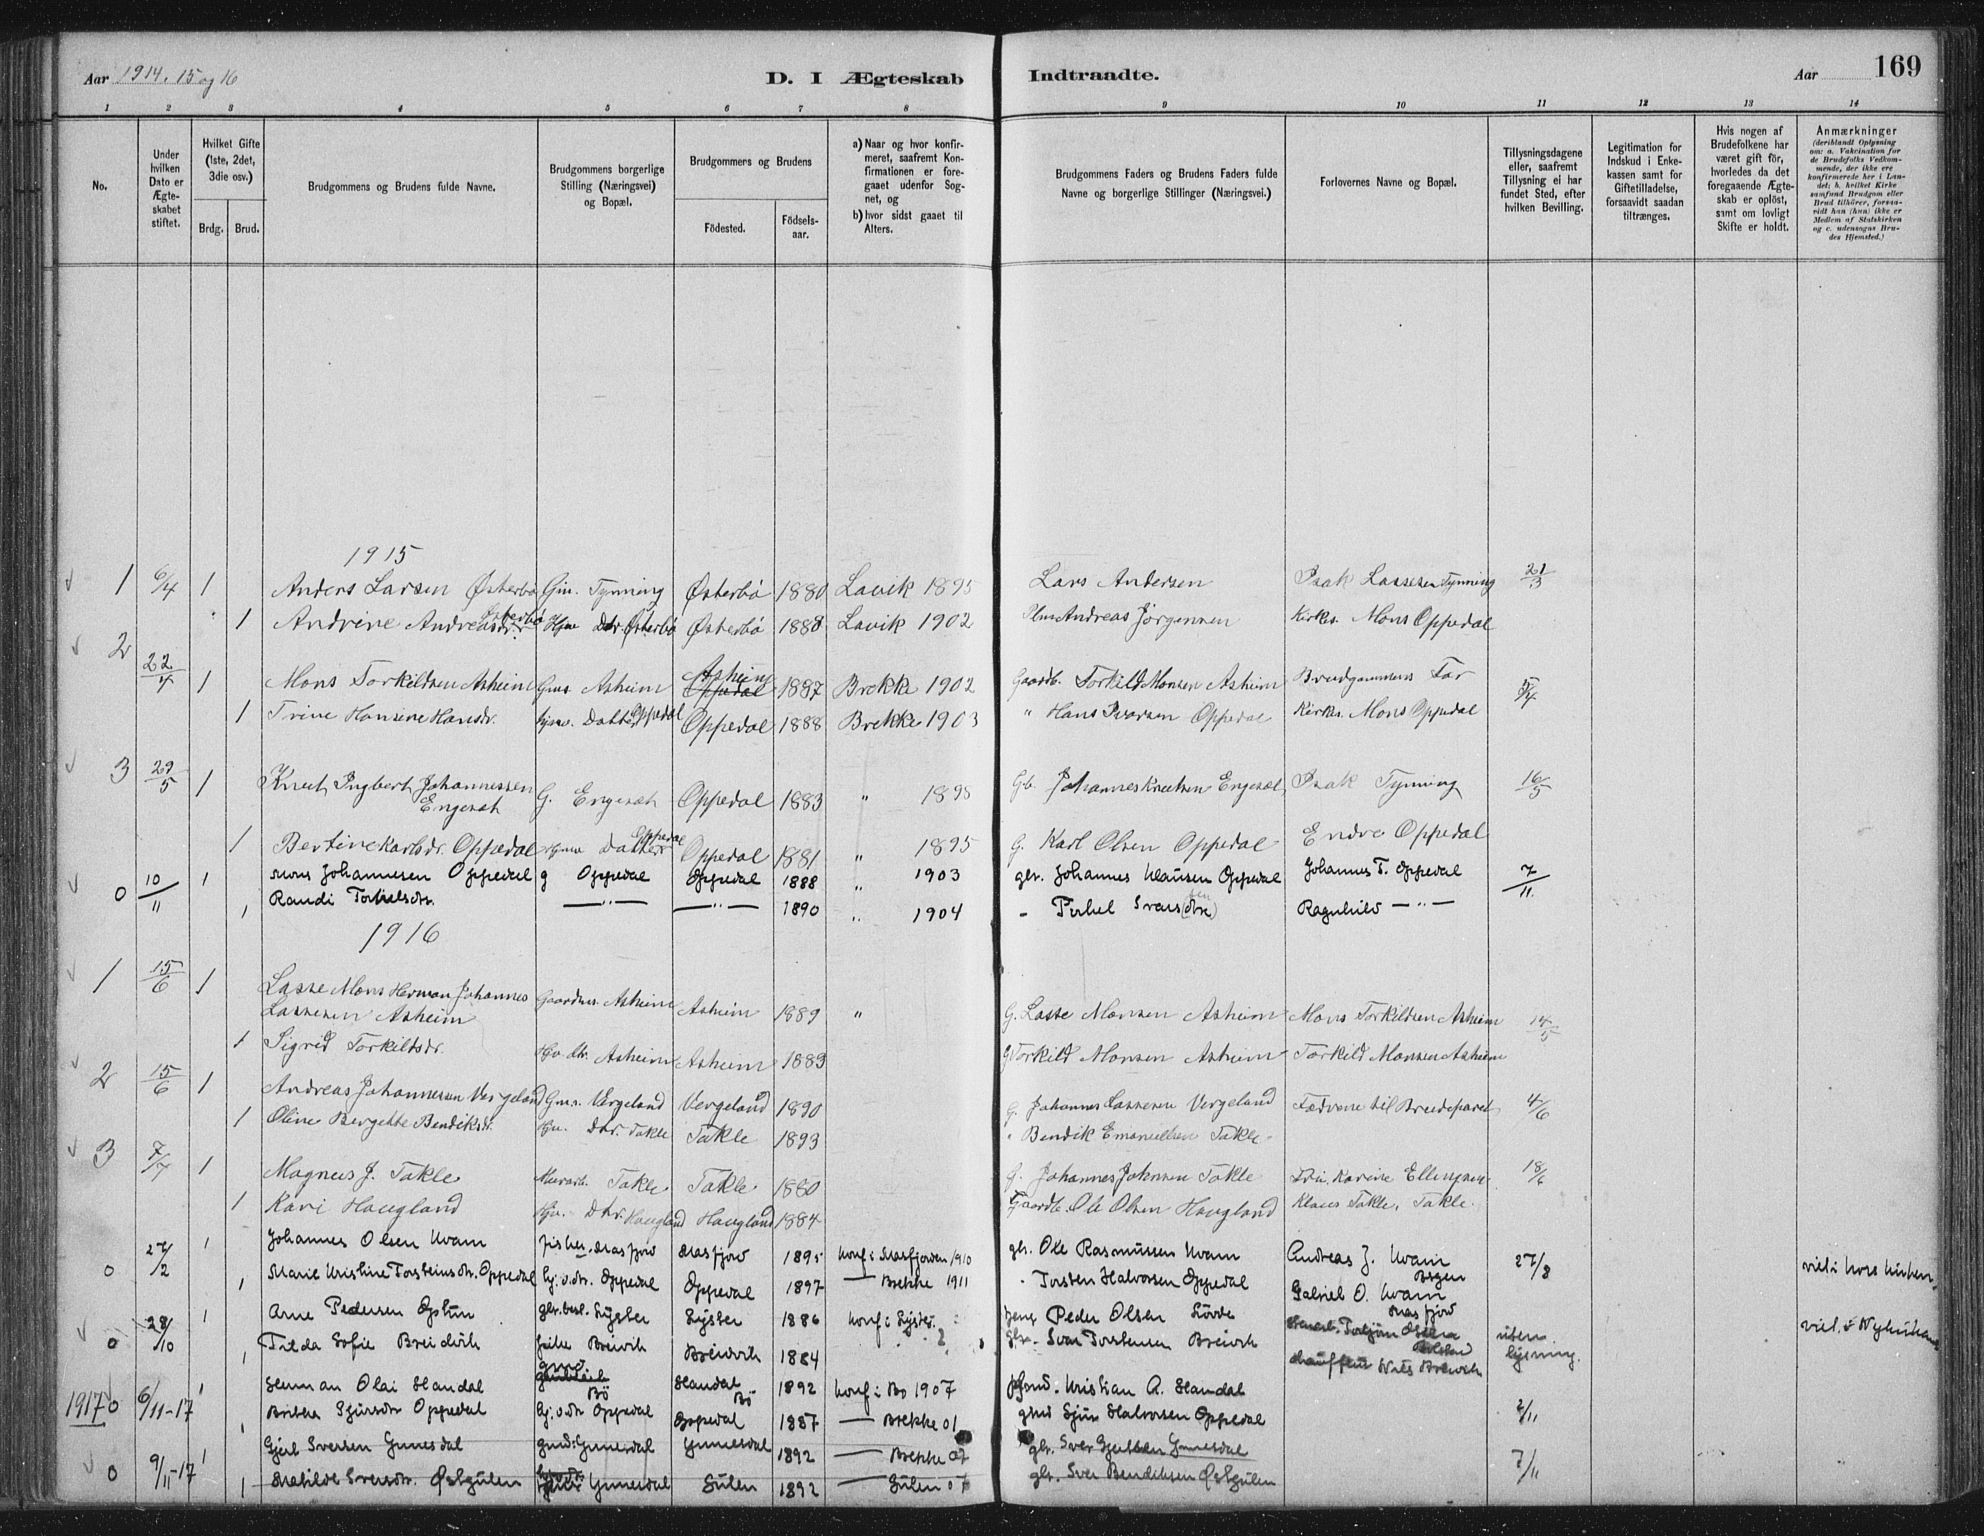 Aar 1914. 15 og 16
D. I Ægteskab
Indtraadte.
Aar
169
1 2 3 4 5 6 7 8 9 10 11 12 13 14
No.
Under hvilken Dato er Ægteskabet stiftet.
Hvilket Gifte (1ste, 2det, 3die osv.)
Brdg. Brud.
Brudgommens og Brudens fulde Navne.
Brudgommens borgerlige Stilling (Næringsvei) og Bopæl.
Brudgommens og Brudens
Födested.
Födselsaar.
a) Naar og hvor konfirmeret, saafremt Konfirmationen er foregaaet udenfor Sognet, og
b) hvor sidst gaaet til Alters.
Brudgommens Faders og Brudens Faders fulde Navne og borgerlige Stillinger (Næringsvei.)
Forlovernes Navne og Bopæl.
Tillysningsdagene eller, saafremt Tillysning ei har fundet Sted, efter hvilken Bevilling.
Legitimation for Indskud i Enkekassen samt for Giftetilladelse, forsaavidt saadan tiltrænges.
Hvis nogen af Brudefolkene har været gift för, hvorledes da det foregaaende Ægteskab er oplöst, samt om lovligt Skifte er holdt.
Anmærkninger (deriblandt Oplysning om: a. Vakcination for de Brudefolks Vedkommende, der ikke ere konfirmerede her i Landet; b. hvilket Kirkesamfund Brudgom eller Brud tilhörer, forsaavidt han (hun) ikke er Medlem af Statskirken og c. udensogns Brudes Hjemsted.)
1915
1 6/4 1 Anders Larsen Østerbø Gm. Tynning Østerbø 1880 Lavik 1895 Lars Andersen Isak Lassesen Tynning 21/3
1 Andrine Andreasdr. Østerbø Hjv. Dtr Østerbø Østerbø 1888 Lavik 1902 Andreas Jörgensen Kirkes. Mons Oppedal
2 22/4 1 Mons Torkildsen Asheim Gms Asheim Asheim Oppedal 1887 Brekke 1902 Gaardb. Torkild Monsen Asheim Brudgommens Far 5/4
1 Trine Hansine Hansdr. hjmv. Datter Oppedal Oppedal 1888 Brekke 1903 " Hans Ivarsen Oppedal Kirkes. Mons Oppedal
3 29/5 1 Knut Ingbert Johannessen Engesæt G. Engesæt Oppedal 1883 " 1898 Gb. Johannes Knutsen Engesæt Isak Tynning 16/5
1 Bertine Karlsdr. Oppedal Hjmv Datter Oppedal Oppedal 1881 " 1895 G. Karl Olsen Oppedal Endre Oppedal
0 10/11 1 Mons Johannesen Oppedal g Oppedal Oppedal 1888 " 1903 gbr. Johannes Klausen Oppedal Johannes T. Oppedal 7/11
1 Randi Torkelsdtr. — " — — " — 1890 " 1904 Ragnhild — " —
1916
1 15/6 1 Lasse Mons Herman Johannes Lassesen Asheim Gaardms. Asheim Asheim 1889 " G. Lasse Monsen Asheim Mons Torkildsen Asheim 14/5
1 Sigrid Torkildsdr. Hjv. dtr. Asheim Asheim 1889 G Torkild Monsen Asheim Torkild Monsen Asheim
2 15/6 1 Andreas Johannessen Vergeland Gms. Vergeland Vergeland 1890 G. Johannes Lassesen Vergeland Fædrene til Brudeparet 4/6
1 Oline Bergitte Bendiksdr. Hjv. Dtr. Takle Takle 1893 " Bendik Emanuelsen Takle
3 7/7 1 Magnus J. Takle Murarb. Takle Takle 1880 G. Johannes Johnsen Takle Karine Ellingsen 18/6
1 Kari Haugland Hjv. Dtr. Haugland Haugland 1884 Gaardb. Ole Olsen Haugland Klaus Takle, Takle.
0 27/2 1 Johannes Olsen Kvam fisker. Masfjord Masfjord 1895 konf. i Masfjorden 1910 gbr. Ole Rasmussen Kvam Andreas J. Kvam Bergen 27/8
1 Marie Kristine Torsteinsdtr. Oppedal hj.v.dtr. Oppedal Oppedal 1897 — Brekke 1911 " Torsten Halvorsen Oppedal Gabriel O. Kvam Masfjord
0 28/10 1 Arne Pedersen gbr.best. Lyster Lyster 1886 konf i Lyster. Peder Olsen uten lysning.
1 Tilda Sofie Breidvik Breivik Breidvik 1884 gbr. Ivar Torstensen Breivik chauffeur Nils Breivik
1917 0 6/11-17 1 Herman Olai Handal Bö Handal Bö 1892 konf i Bö 1907 Kristian A. Handal 2/11
1 Sjursdtr Oppedal hj.v.dtr Oppedal Oppedal 1887 — Brekke 01 gmd Sjur Halvorsen Oppedal
0 9/11-17 1 Gjert Sversen Ynnesdal gmd. Ynnesdal Ynnesdal 1892 — Brekke 07 gbr. Sver Gjertsen Ynnesdal 7/11
1 Matilde Sversdtr. Østgulen Ynnesdal Gulen 1892 — Gulen 07 gbr. Sver Bendiksen Østgulen